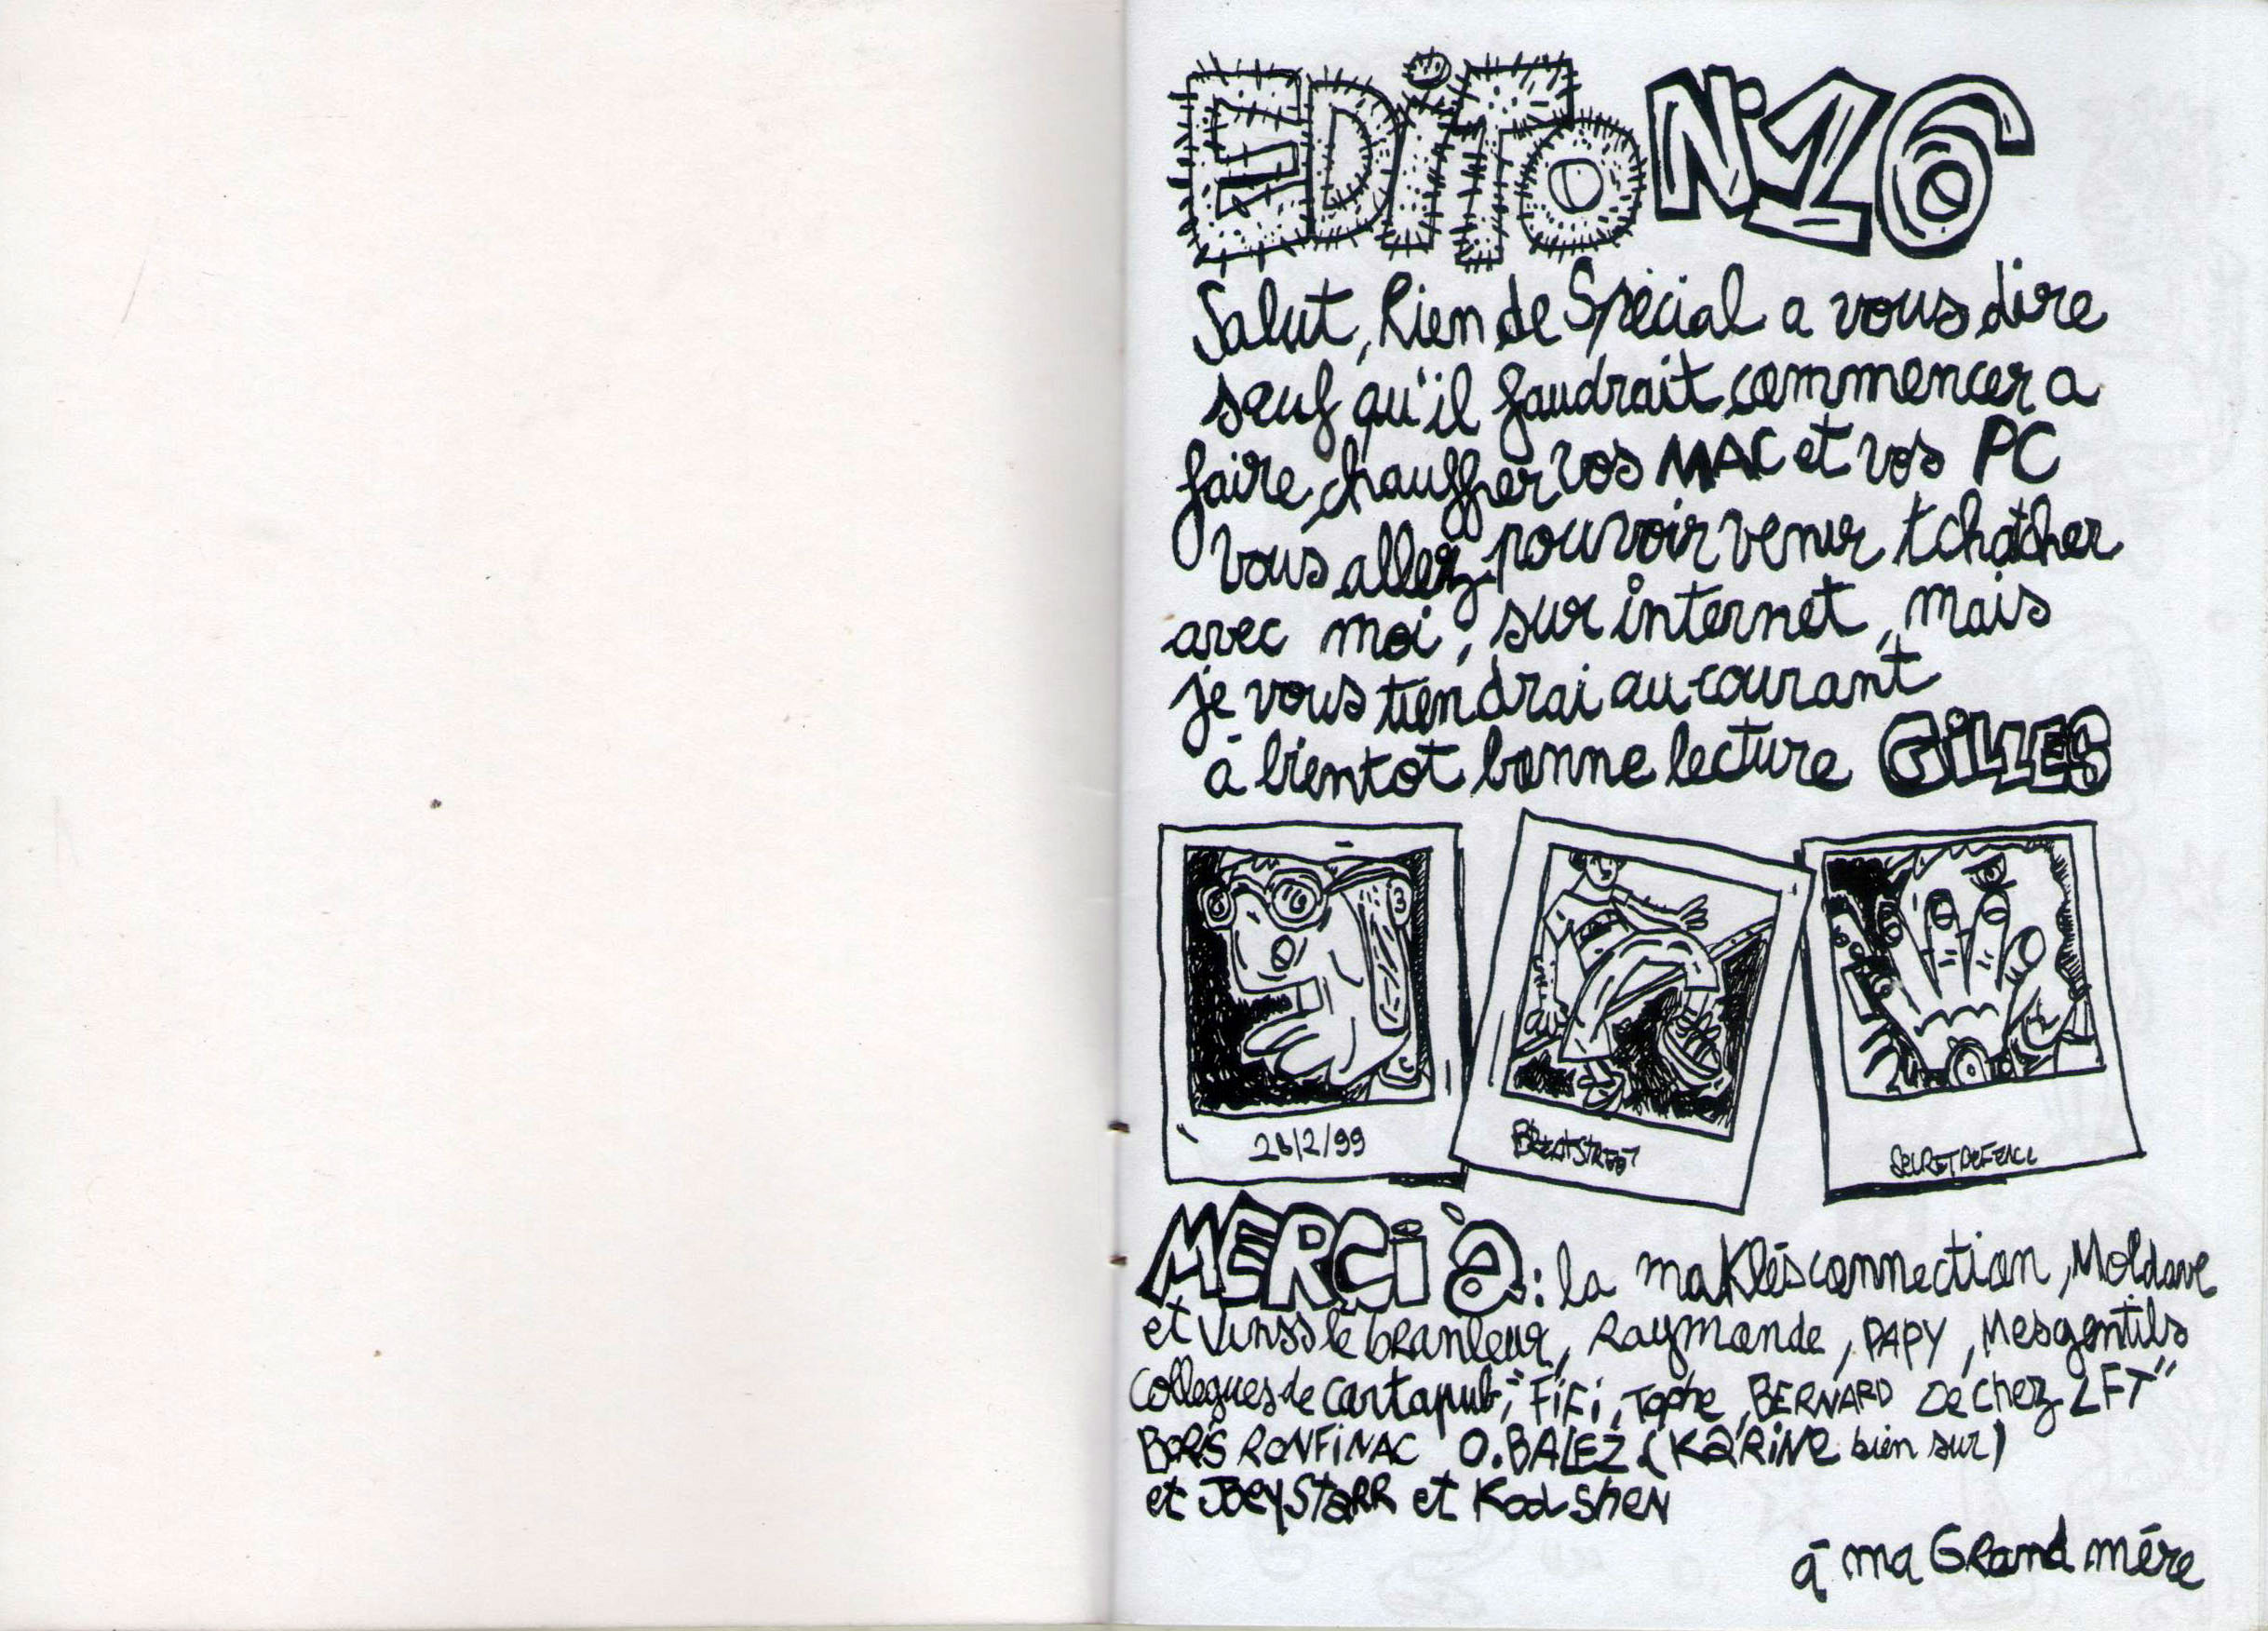 EDiTO N°16
Salut, Rien de Spécial a vous dire
sauf qu'il faudrait commencer a
faire chauffer vos MAC et vos PC
Vous allez pouvoir venir tchatcher
avec moi, sur internet, mais
je vous tiendrai au courant
à bientot bonne lecture GILLES
26/2/99
BREATSTREET
SECRET DEFENCE
MERCi à : la maKlésconnection, Moldave
et Vinss le branleur, Raymonde, PAPY, Mes gentils
Collegues de cartapub, "FiFi, Tophe, BERNARD de chez LFT"
BORiS RONFiNAC O.BALEZ (KARiNe bien sur)
et JOEYSTARR et Kool SHEN
à ma Grand mére